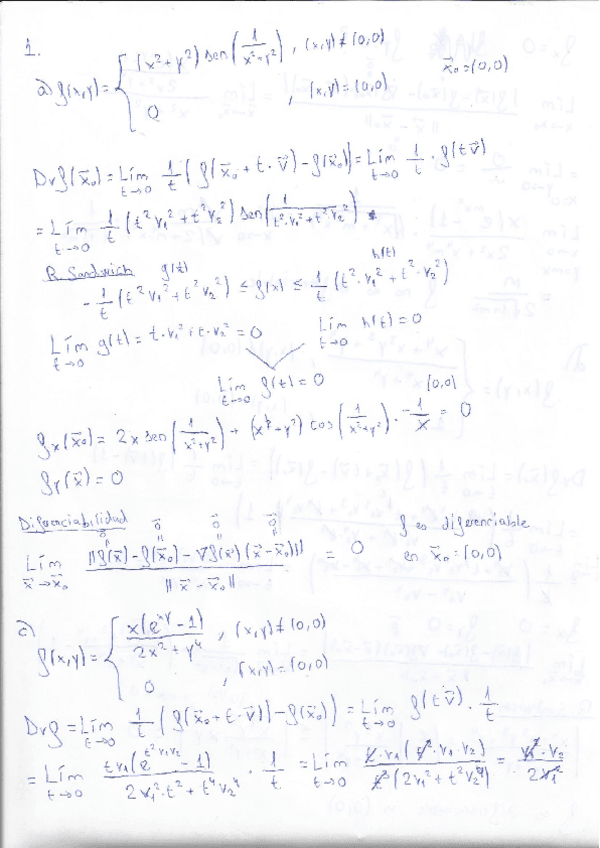 1.
a) f(x,y) = { (x² + y²) sen(1/(x²+y²)), (x,y) ≠ (0,0)
0 , (x,y) = (0,0)
x⃗₀ = (0,0)
Dvf(x⃗₀) = Lím t→0 1/t (f(x⃗₀ + t·v⃗) - f(x⃗₀)) = Lím t→0 1/t · f(tv⃗)
= Lím t→0 1/t (t²v₁² + t²v₂²) sen(1/(t²·v₁² + t²v₂²))
R. Sandwich g(t) h(t)
- 1/t (t²v₁² + t²v₂²) ≤ f(x) ≤ 1/t (t²·v₁² + t²·v₂²)
Lím t→0 g(t) = t·v₁² + t·v₂² = 0 Lím t→0 h(t) = 0
Lím t→0 f(t) = 0
(0,0)
fx(x⃗₀) = 2x sen(1/(x²+y²)) + (x²+y²) cos(1/(x²+y²)) · -1/x = 0
fy(x⃗) = 0
Diferenciabilidad
Lím x⃗→x⃗₀ ||f(x⃗) - f(x⃗₀) - ∇f(x⃗)(x⃗-x⃗₀)|| / ||x⃗ - x⃗₀|| = 0 f es diferenciable
en x⃗₀ = (0,0)
c)
f(x,y) = { x(e^xy - 1)/(2x² + y⁴), (x,y) ≠ (0,0)
0 , (x,y) = (0,0)
Dvf = Lím t→0 1/t (f(x⃗₀ + t·v⃗) - f(x⃗₀)) = Lím t→0 f(tv⃗) · 1/t
= Lím t→0 tv₁(e^t²v₁v₂ - 1)/(2v₁²·t² + t⁴v₂⁴) · 1/t = Lím t→0 t·v₁(t²·v₁·v₂)/(t³(2v₁² + t²v₂⁴)) = v₁²·v₂/2v₁²